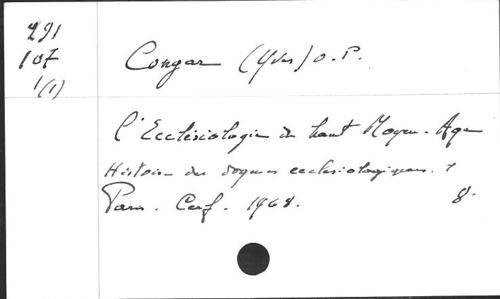 291
107
1/(1)
Congar (Yves) O.P.
l'Ecclésiologie du haut Moyen-Age
Histoire des dogmes ecclésiologiques. 1
Paris. Cerf. 1968. 8.